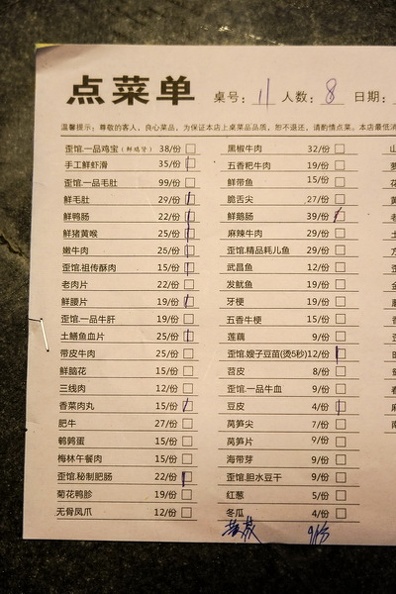 点菜单 桌号: 11 人数: 8 日期:
温馨提示: 尊敬的客人, 良心菜品, 为保证本店上桌菜品品质, 恕不退还, 请酌情点菜。本店最低消
歪馆.一品鸡宝(鲜鸡肾) 38/份
手工鲜虾滑 35/份
歪馆.一品毛肚 99/份
鲜毛肚 29/份
鲜鸭肠 22/份
鲜猪黄喉 25/份
嫩牛肉 25/份
歪馆.祖传酥肉 15/份
老肉片 22/份
鲜腰片 19/份
歪馆.一品牛肝 19/份
土鳝鱼血片 25/份
带皮牛肉 25/份
鲜脑花 15/份
三线肉 12/份
香菜肉丸 15/份
肥牛 27/份
鹌鹑蛋 15/份
梅林午餐肉 15/份
歪馆.秘制肥肠 22/份
菊花鸭胗 19/份
无骨凤爪 12/份
黑椒牛肉 32/份
五香粑牛肉 19/份
鲜带鱼 15/份
脆舌尖 27/份
鲜鹅肠 39/份
麻辣牛肉 29/份
歪馆.精品耗儿鱼 29/份
武昌鱼 12/份
发鱿鱼 19/份
牙梗 19/份
五香牛梗 15/份
莲藕 9/份
歪馆.嫂子豆苗(烫5秒)12/份
苕皮 8/份
歪馆.一品牛血 9/份
豆皮 4/份
莴笋尖 7/份
莴笋片 9/份
海带芽 9/份
歪馆.胆水豆干 9/份
红薯 5/份
冬瓜 4/份
9/份